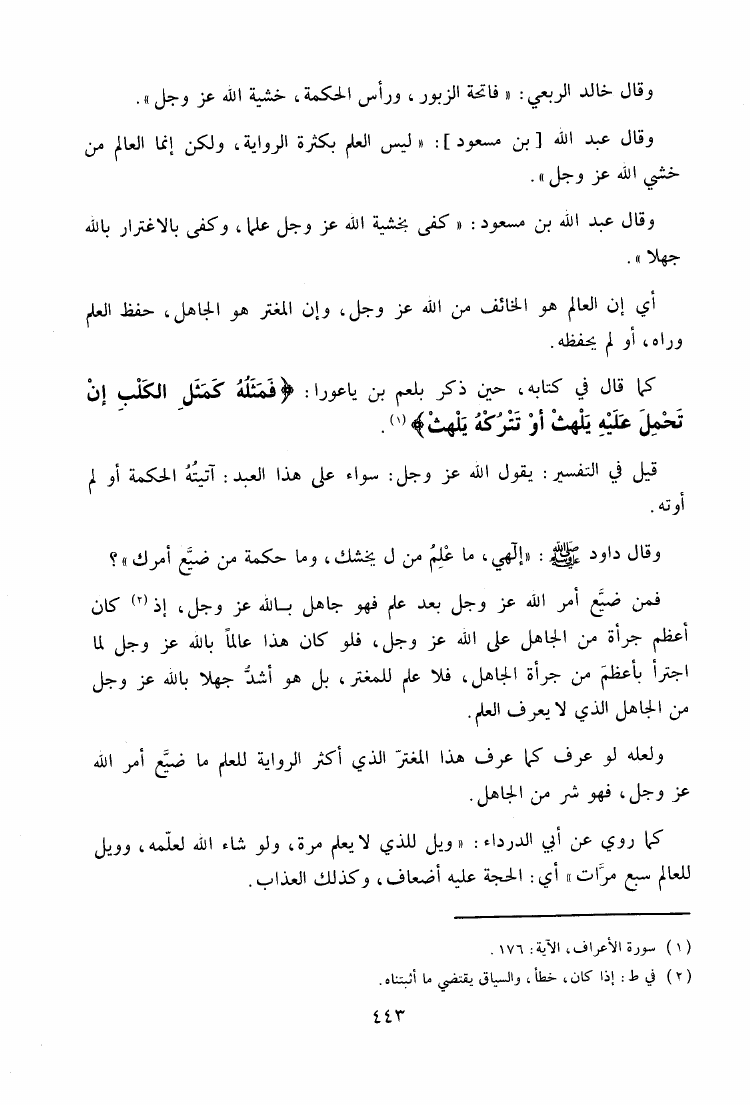 وقال خالد الربعي: « فاتحة الزبور ، ورأس الحكمة ، خشية الله عز وجل ».
وقال عبد الله [ بن مسعود ]: « ليس العلم بكثرة الرواية، ولكن إنما العالم من
خشي الله عز وجل ».
وقال عبد الله بن مسعود: « كفى بخشية الله عز وجل علما، وكفى بالاغترار بالله
جهلا ».
أي إن العالم هو الخائف من الله عز وجل، وإن المغتر هو الجاهل، حفظ العلم
وراه، أو لم يحفظه.
كما قال في كتابه، حين ذكر بلعم بن ياعورا: ﴿فَمَثَلُهُ كَمَثَلِ الكَلْبِ إنْ
تَحْمِلَ عَلَيْهِ يَلْهثْ أوْ تَتْرُكْهُ يَلْهثْ﴾(١).
قيل في التفسير: يقول الله عز وجل: سواء على هذا العبد: آتيتُهُ الحكمة أو لم
أوته.
وقال داود ﷺ: «إلٰهي، ما عْلِمُ من ل يخشك، وما حكمة من ضيَّع أمرك»؟
فمن ضيَّع أمر الله عز وجل بعد علم فهو جاهل بالله عز وجل، إذ(٢) كان
أعظم جرأة من الجاهل على الله عز وجل، فلو كان هذا عالماً بالله عز وجل لما
اجترأ بأعظمَ من جرأة الجاهل، فلا علم للمغتر، بل هو أشدُّ جهلا بالله عز وجل
من الجاهل الذي لا يعرف العلم.
ولعله لو عرف كما عرف هذا المغترّ الذي أكثر الرواية للعلم ما ضيَّع أمر الله
عز وجل، فهو شر من الجاهل.
كما روي عن أبي الدرداء: « ويل للذي لا يعلم مرة، ولو شاء الله لعلّمه، وويل
للعالم سبع مرَّات» أي: الحجة عليه أضعاف، وكذلك العذاب.
(١) سورة الأعراف، الآية: ١٧٦.
(٢) في ط: إذا كان، خطأ، والسياق يقتضي ما أثبتناه.
٤٤٣